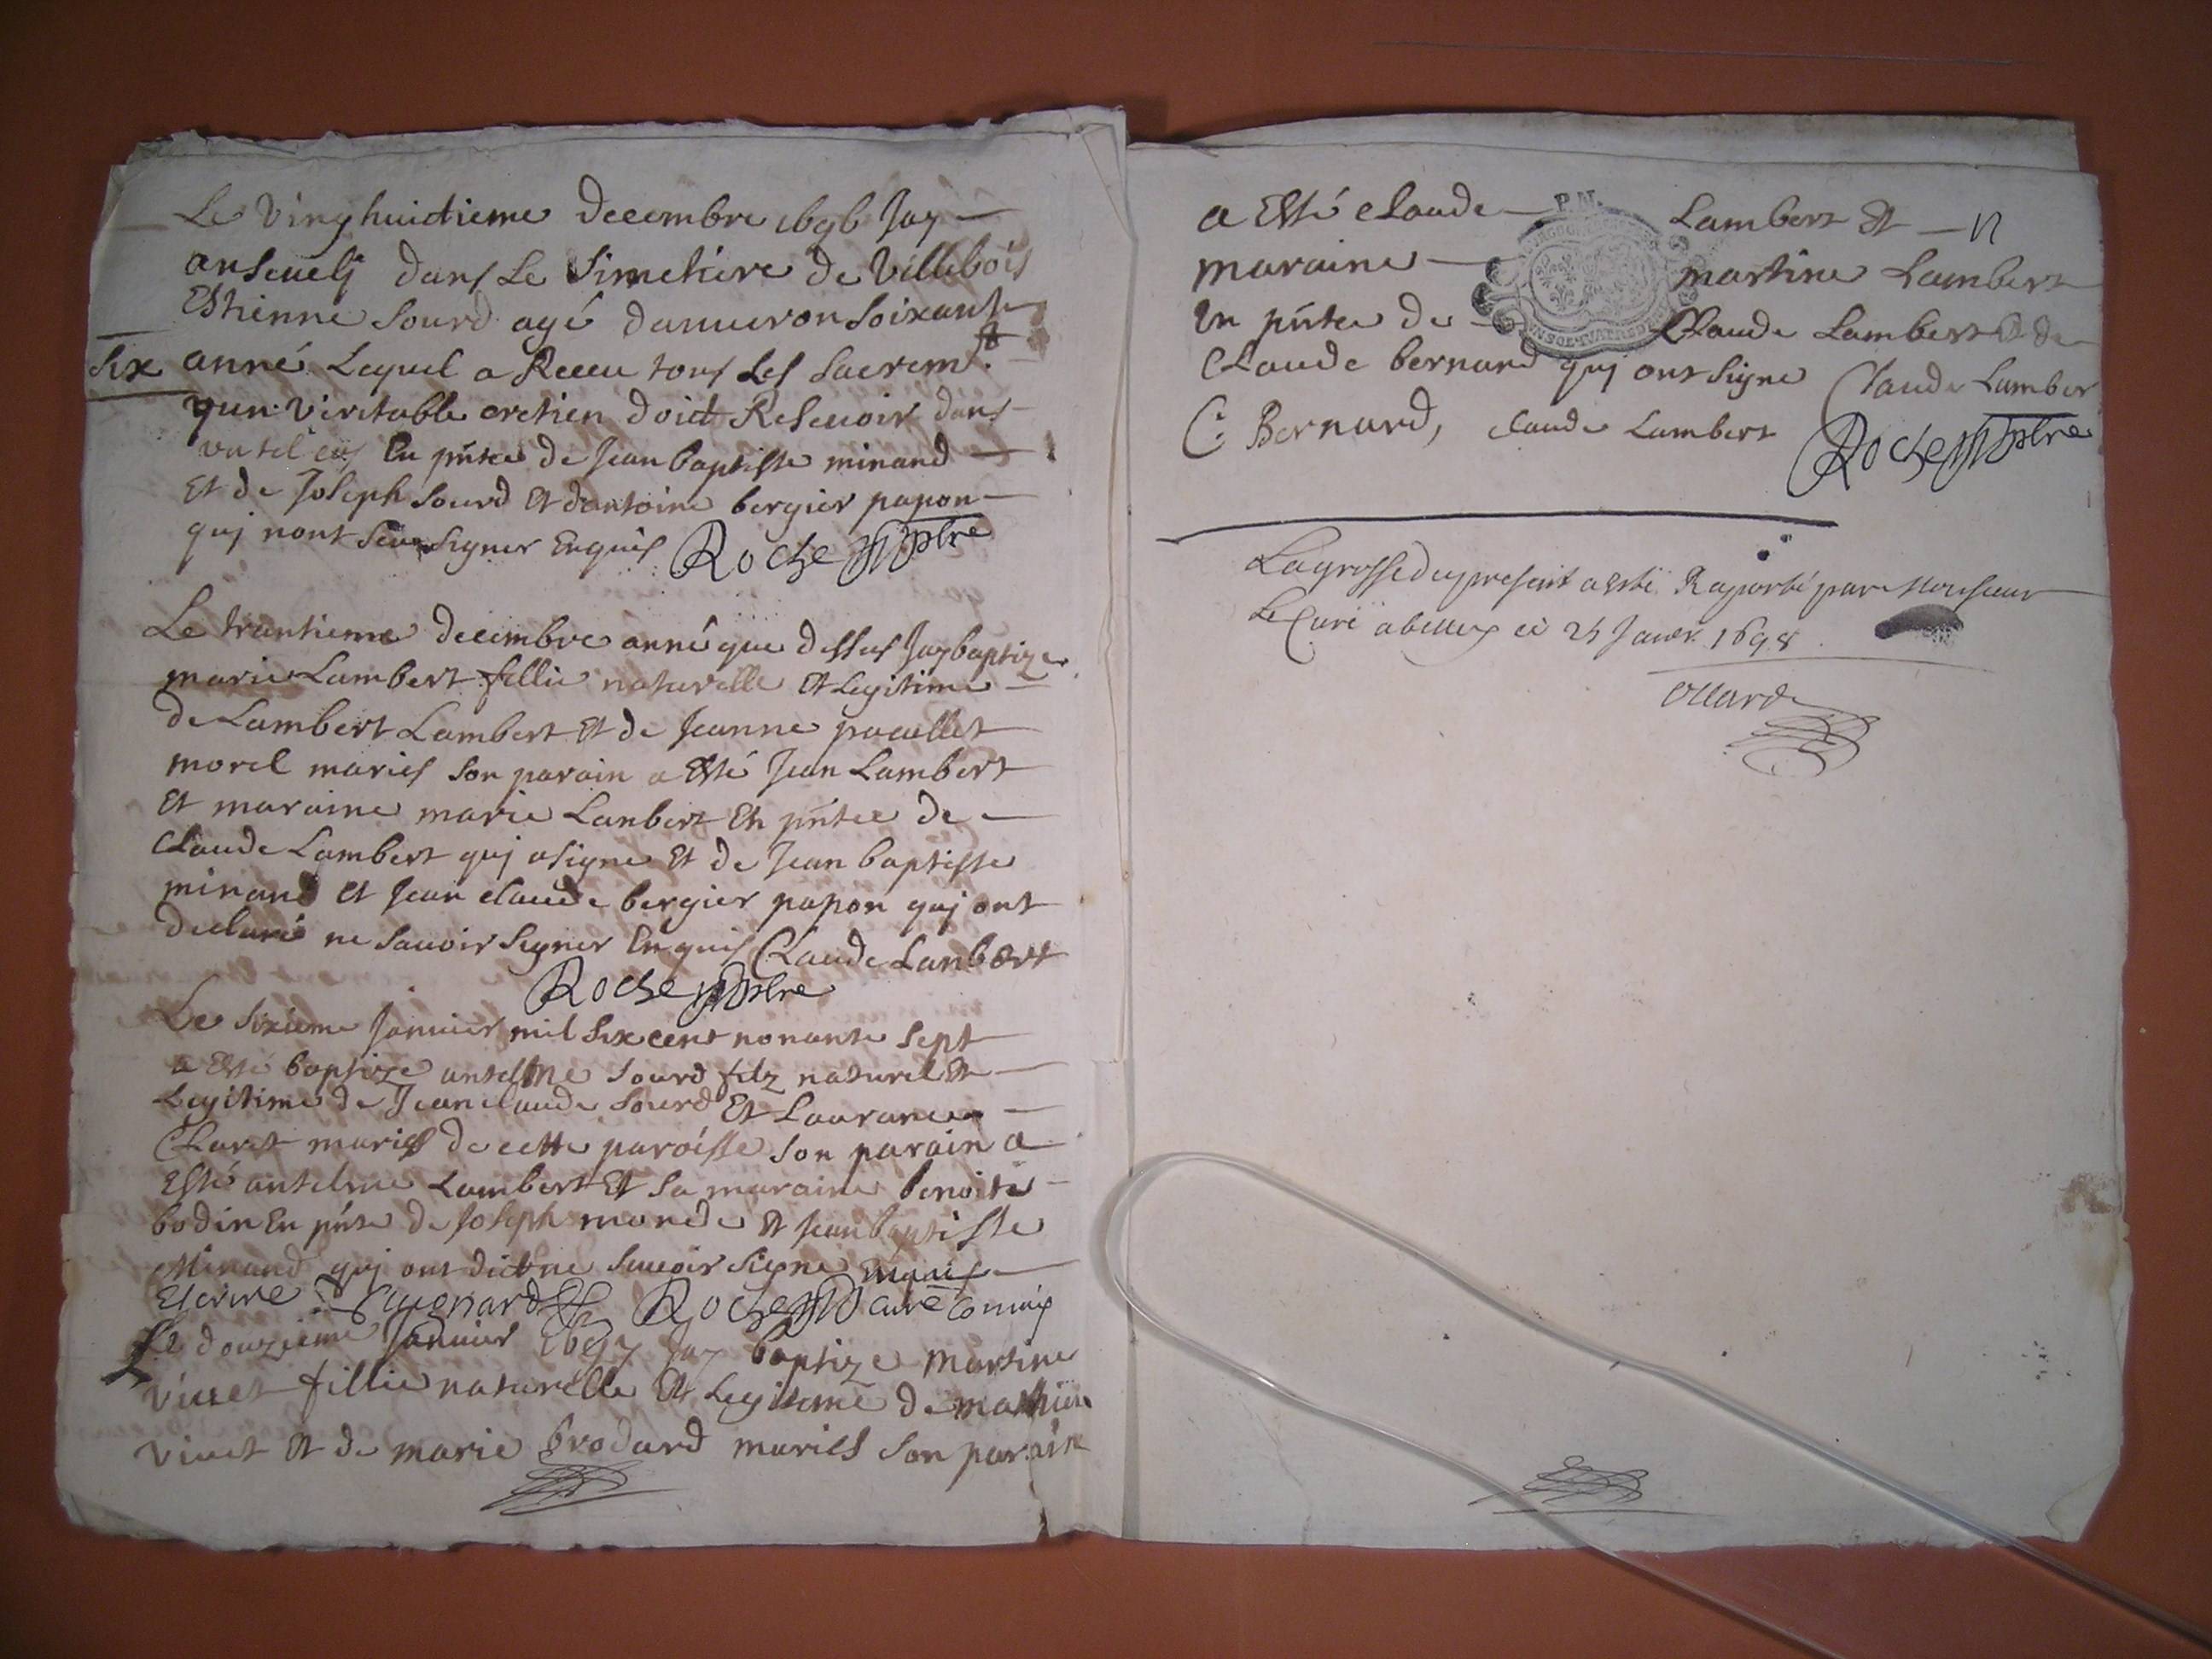 Le Vinghuictieme decembre 1696 Jay
ansevely dans Le Simetiere de Villebois
Estienne Sourd agé danviron Soixante
Six anné Lequel a Receu tous Les Sacremts
qun veritable cretien doict Resevoir dans
un tel cas En pñtce de Jean baptiste minand
Et de Joseph Sourd Et dantoine bergier papon
qui nont Seu Signer Enquis Roche ptre
Le trantieme decembre anné que dessus Jay baptize
marie Lambert fillie naturelle Et Legitime
de Lambert Lambert Et de Jeanne pacallet
morel maries Son parain a Esté Jean Lambert
Et maraine marie Lanbert En pñtce de
Claude Lambert qui a signe Et de Jean baptiste
minand Et Jean claude bergier papon qui ont
declaré ne Savoir Signer Enquis Claude Lanbert
Roche ptre
Le Sixieme Janvier mil Six cent nonante Sept
a Esté baptize antelme Sourd filz naturel Et
Legitime de Jean claude Sourd Et Laurance
Claret maries de cette paroisse Son parain a
Esté antelme Lambert Et Sa maraine benoite
bodin En pñte de Joseph monde Et Jean baptiste
Minand qui ont dict ne Savoir Signe
Escrire Roche curé
Le douzieme Janvier 1697 Jay baptize Martine
Vivet fillie naturelle Et Legitime de mathieu
Vivet Et de marie brodard maries Son parain
a Esté claude Lambert Et
maraine martine Lambert
En pñtce de Claude Lambert Et de
Claude bernard qui ont Signe Claude Lamber
C Bernard, claude Lambert Roche ptre
La grosse du present a esté Raporté par Monsieur
Le Curé a belley ce 25 Janvr. 1698